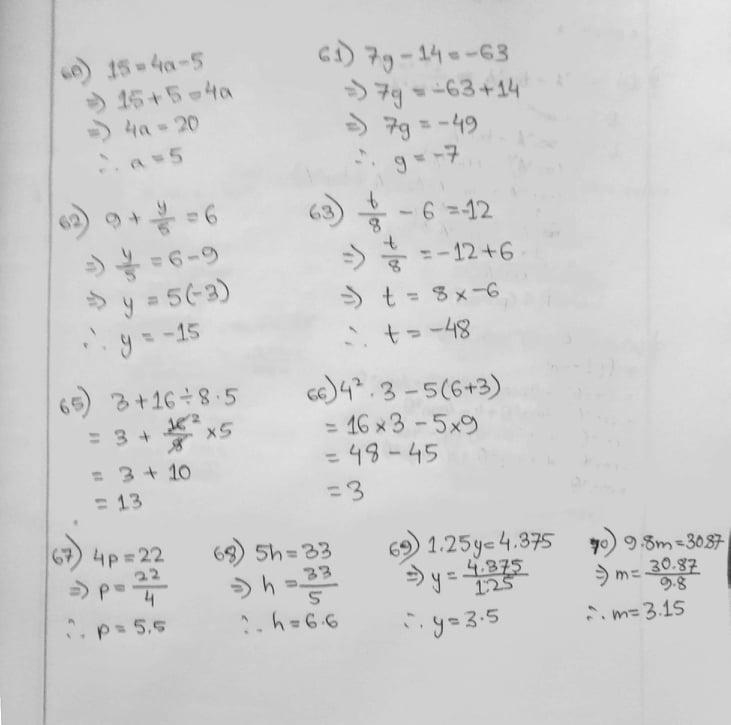 60) 15 = 4a - 5
⇒ 15 + 5 = 4a
⇒ 4a = 20
∴ a = 5
61) 7g - 14 = -63
⇒ 7g = -63 + 14
⇒ 7g = -49
∴ g = -7
62) 9 + y/5 = 6
⇒ y/5 = 6 - 9
⇒ y = 5(-3)
∴ y = -15
63) t/8 - 6 = -12
⇒ t/8 = -12 + 6
⇒ t = 8 × -6
∴ t = -48
65) 3 + 16 ÷ 8 · 5
= 3 + 16²/8 × 5
= 3 + 10
= 13
66) 4² · 3 - 5(6+3)
= 16 × 3 - 5 × 9
= 48 - 45
= 3
67) 4p = 22
⇒ p = 22/4
∴ p = 5.5
68) 5h = 33
⇒ h = 33/5
∴ h = 6.6
69) 1.25y = 4.375
⇒ y = 4.375/1.25
∴ y = 3.5
70) 9.8m = 30.87
⇒ m = 30.87/9.8
∴ m = 3.15